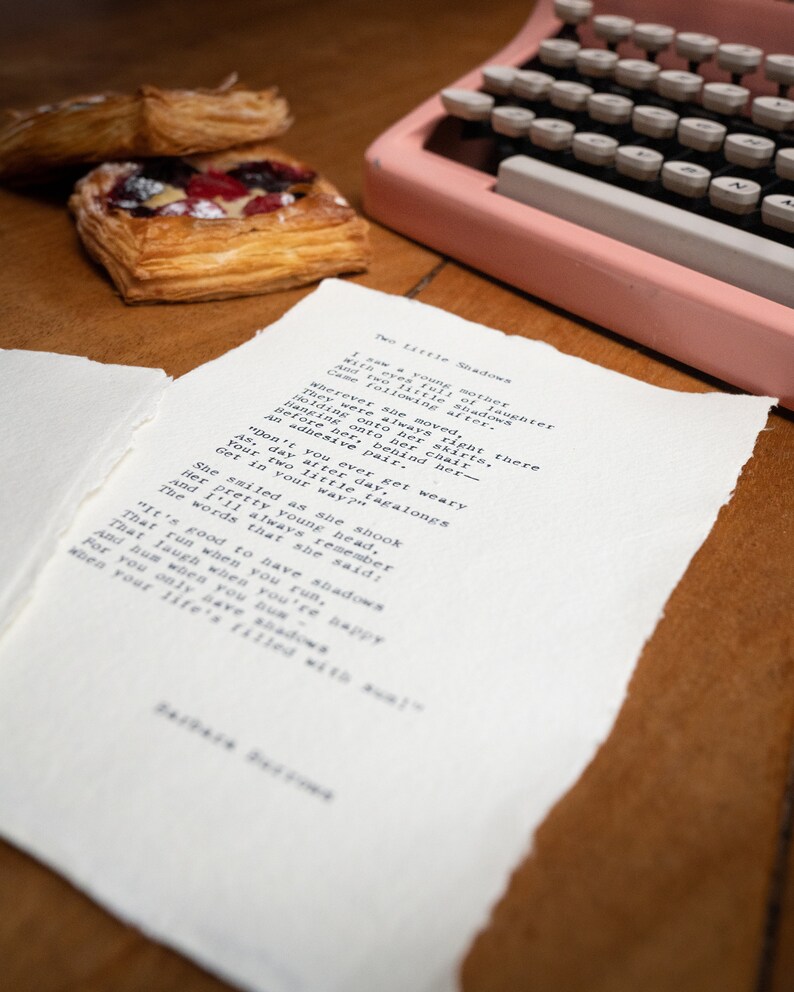 Two Little Shadows
I saw a young mother
With eyes full of laughter
And two little shadows
Came following after.
Wherever she moved,
They were always right there
Holding onto her skirts,
Hanging onto her chair
Before her, behind her—
An adhesive pair.
"Don't you ever get weary
As, day after day,
Your two little tagalongs
Get in your way?"
She smiled as she shook
Her pretty young head,
And I'll always remember
The words that she said:
"It's good to have shadows
That run when you run,
That laugh when you're happy
And hum when you hum -
For you only have shadows
When your life's filled with sun!"
Barbara Burrows
B N M